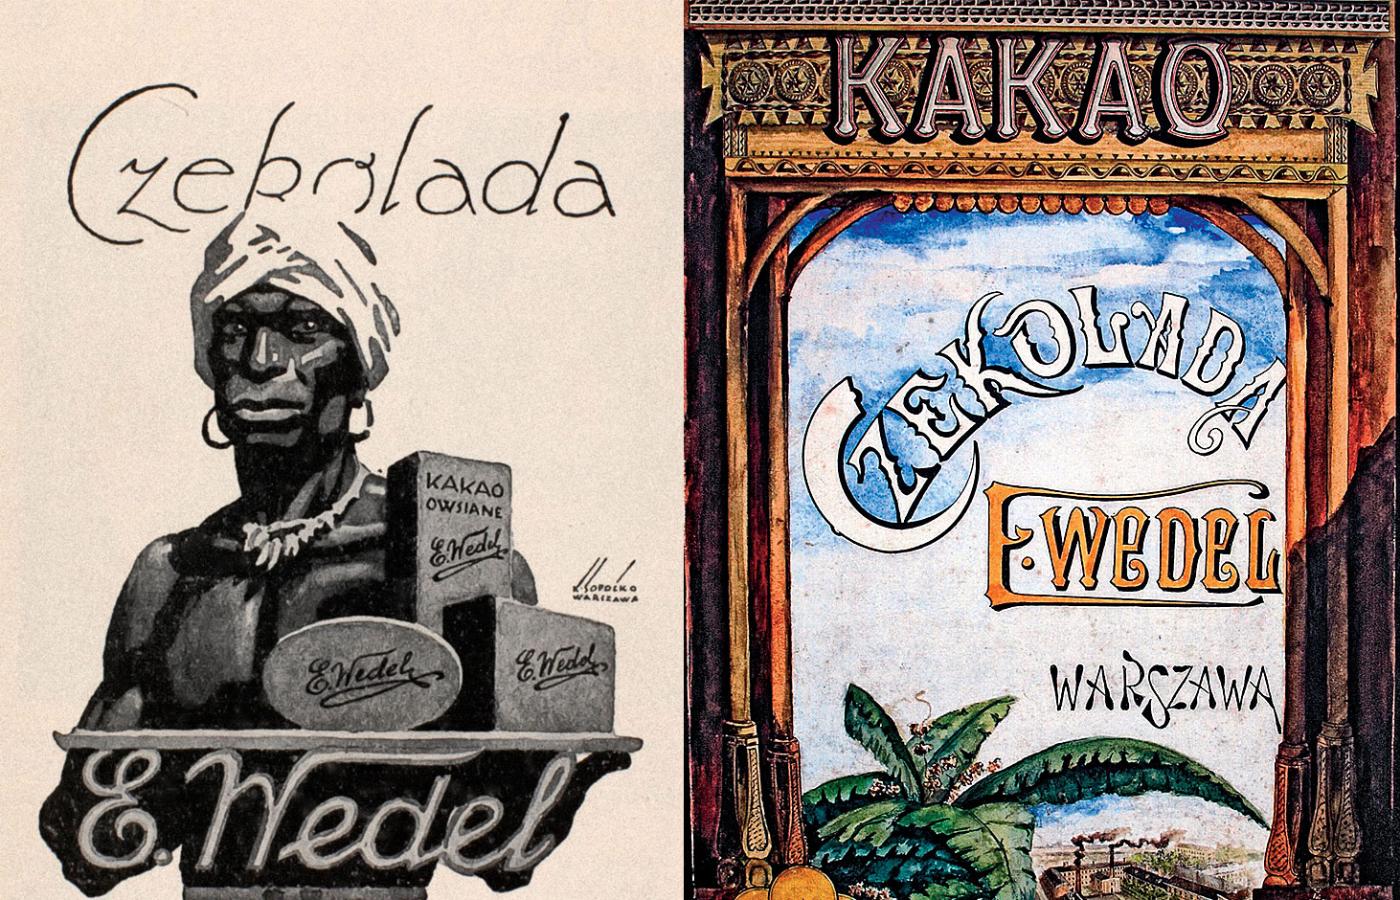 Czekolada
KAKAO
OWSIANE
E. Wedel
E. Wedel
E. Wedel
WARSZAWA
E. Wedel
KAKAO
CZEKOLADA
E. WEDEL
WARSZAWA